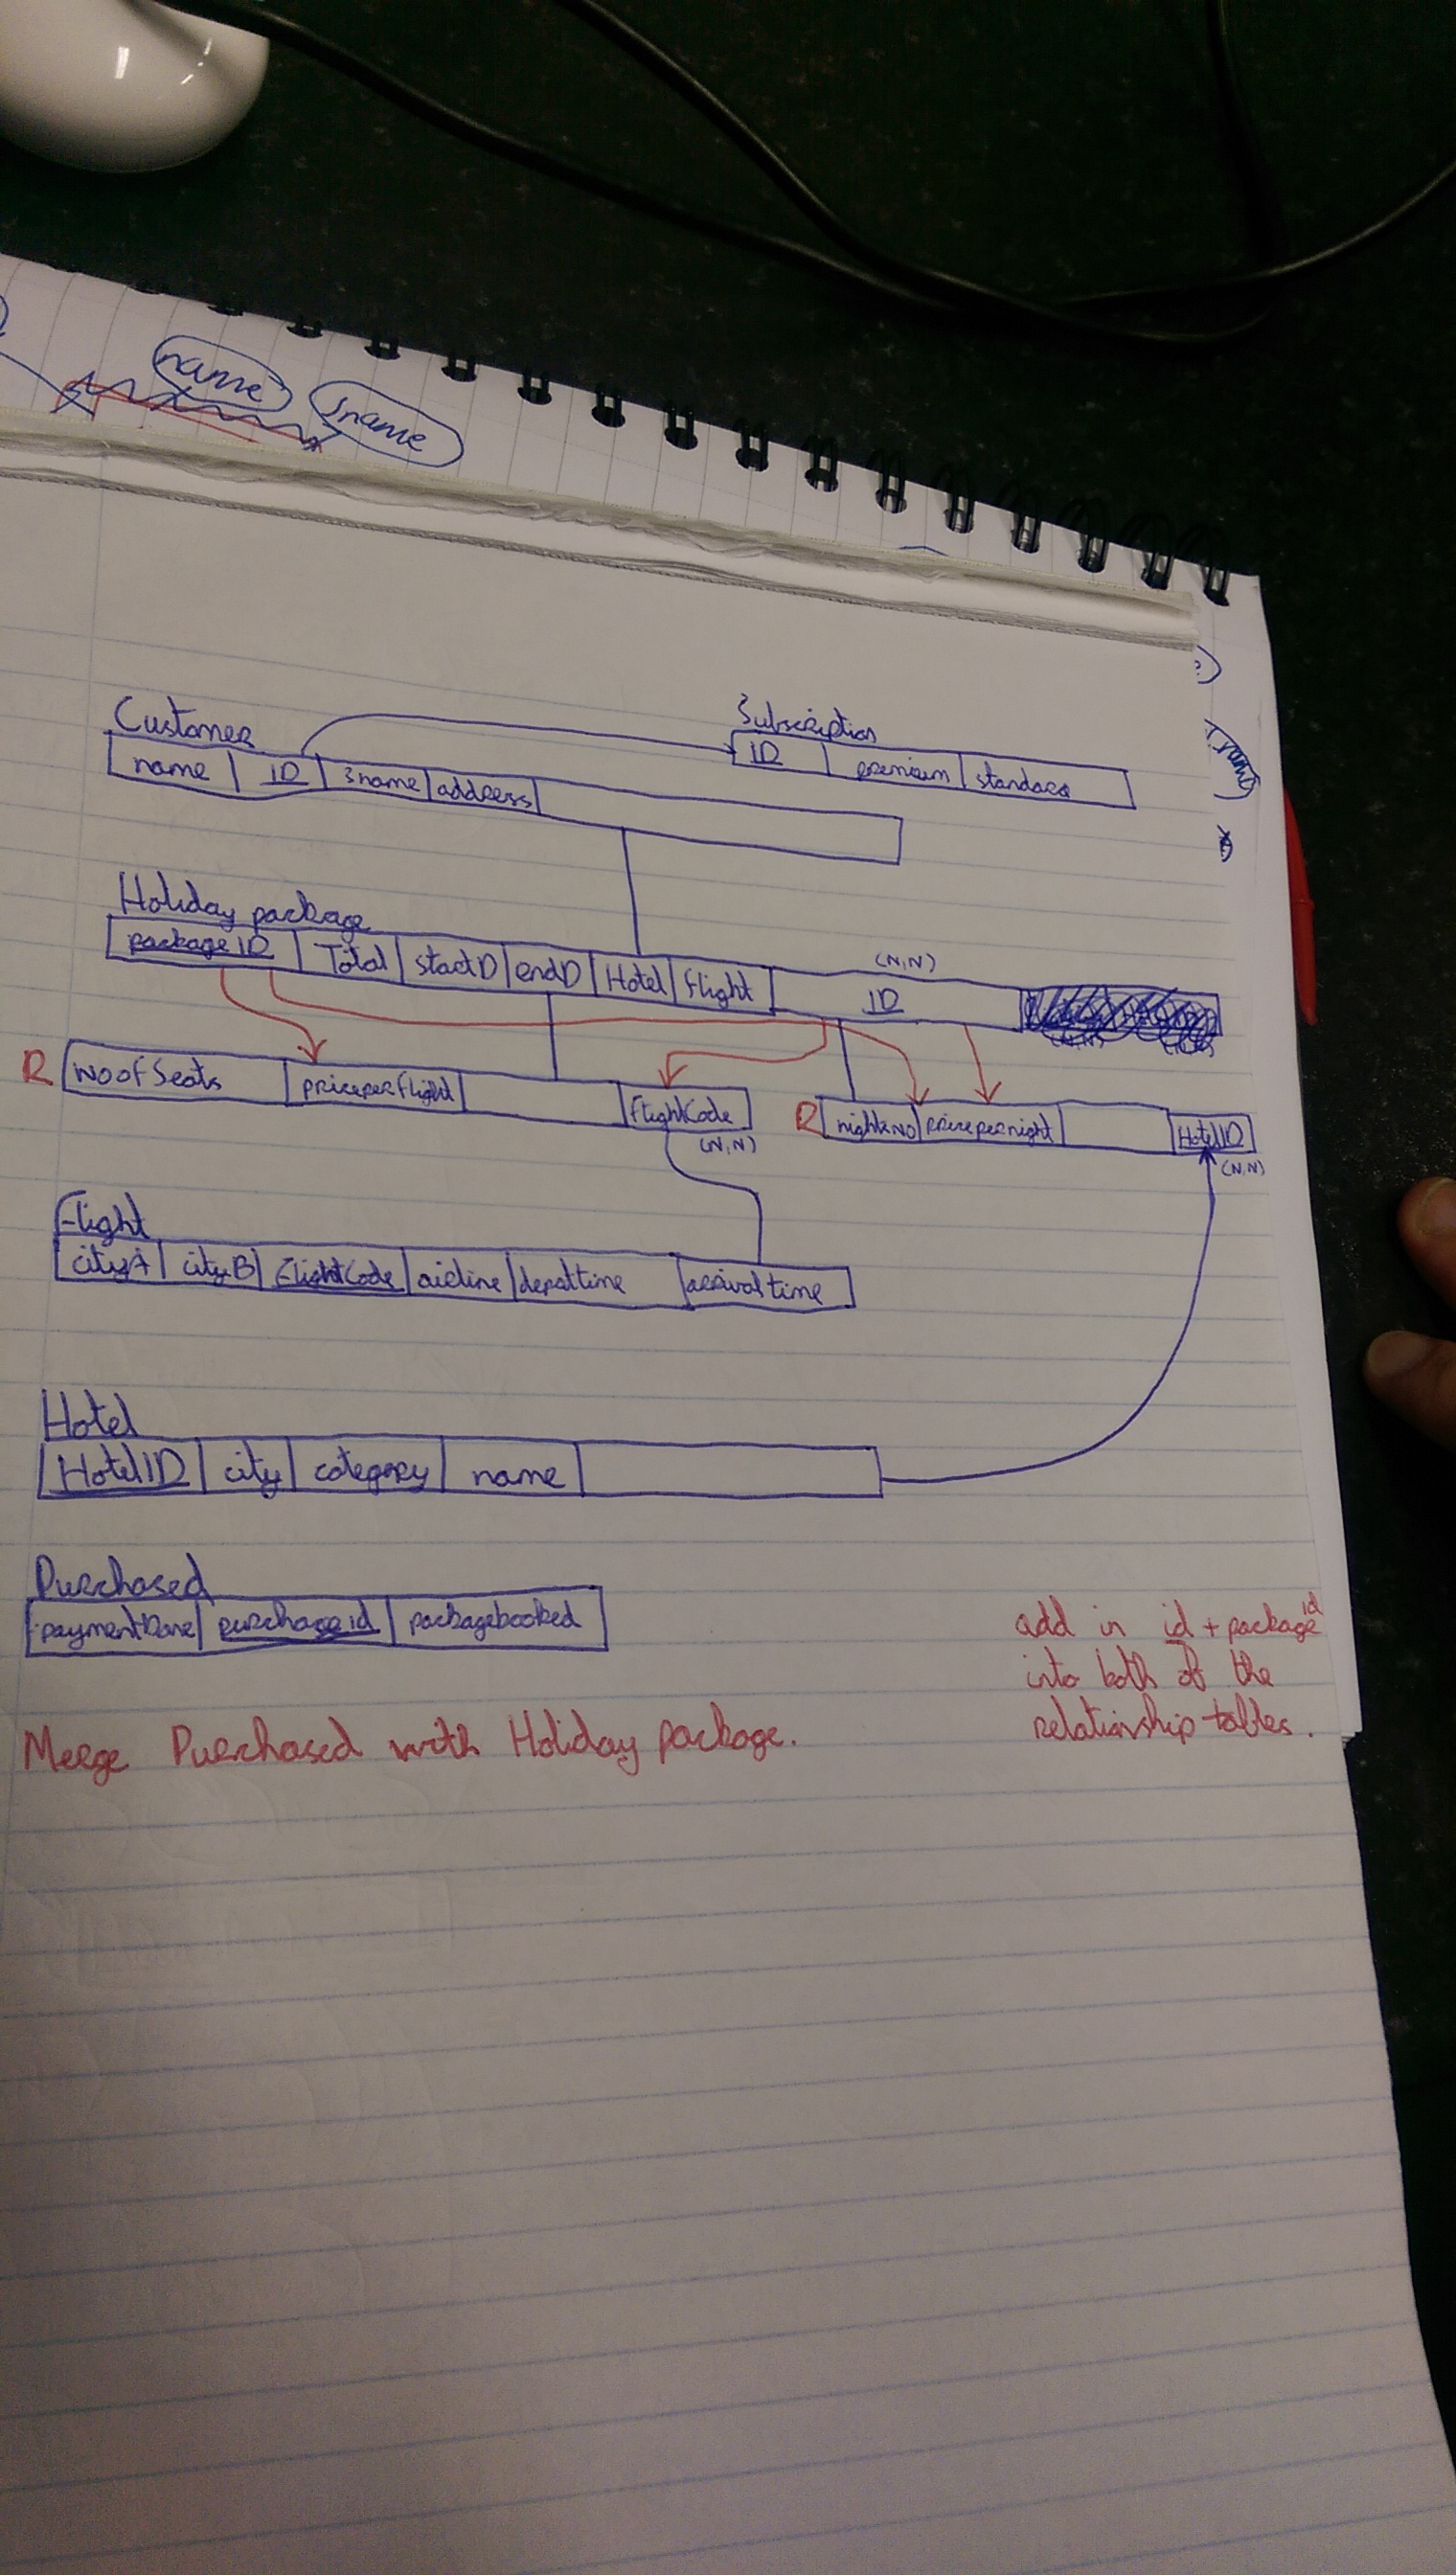 name
sname
Customer
name ID sname address
Subscription
ID premium standard
Holiday package
packageID Total startD endD Hotel flight ID
(N,N)
R noofSeats priceperflight flightCode
(N,N)
R nightsNo pricepernight HotelID
(N,N)
Flight
cityA cityB FlightCode airline departtime arrivaltime
Hotel
HotelID city category name
Purchased
purchaseid packagebooked
add in id + package id
into both of the
relationship tables.
Merge Purchased with Holiday package.